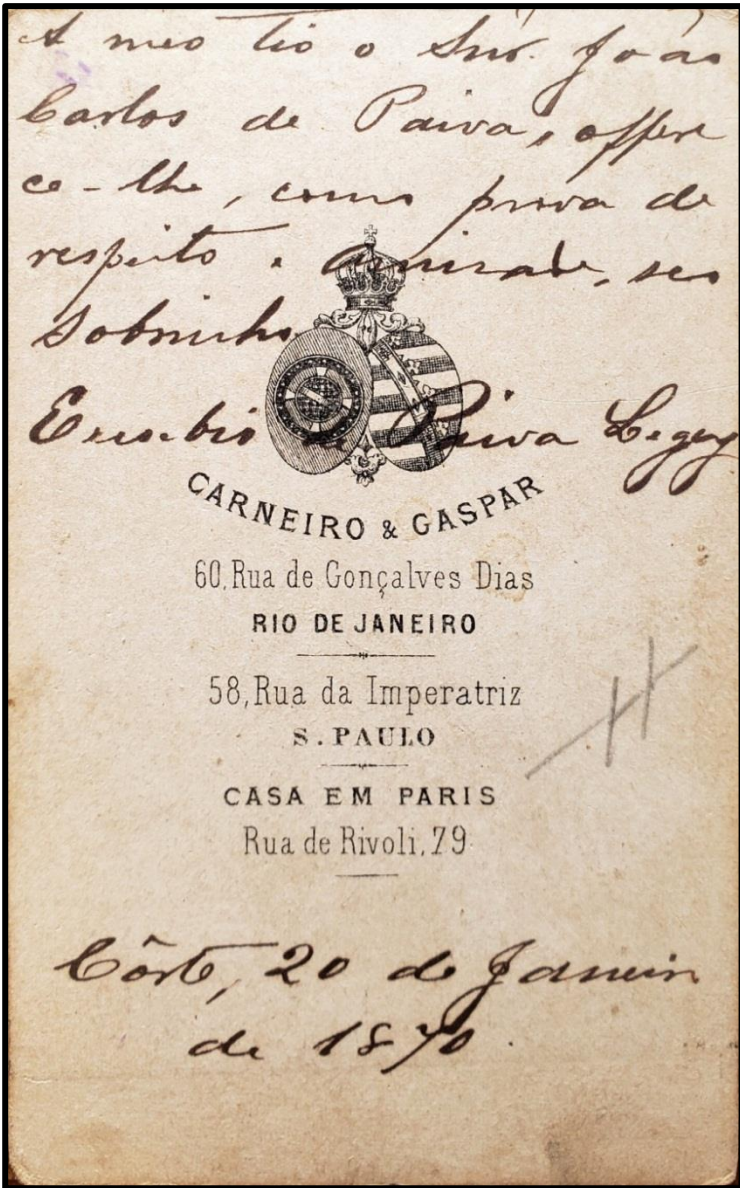 A meo tio o Snr. João
Carlos de Paiva, offere
ce-lhe, como prova de
respeito e amizade, seo
sobrinho
Eusebio de Paiva Legey
CARNEIRO & GASPAR
60, Rua de Gonçalves Dias
RIO DE JANEIRO
58, Rua da Imperatriz
S. PAULO
CASA EM PARIS
Rua de Rivoli, 79
Côrte, 20 de Janeiro
de 1870.